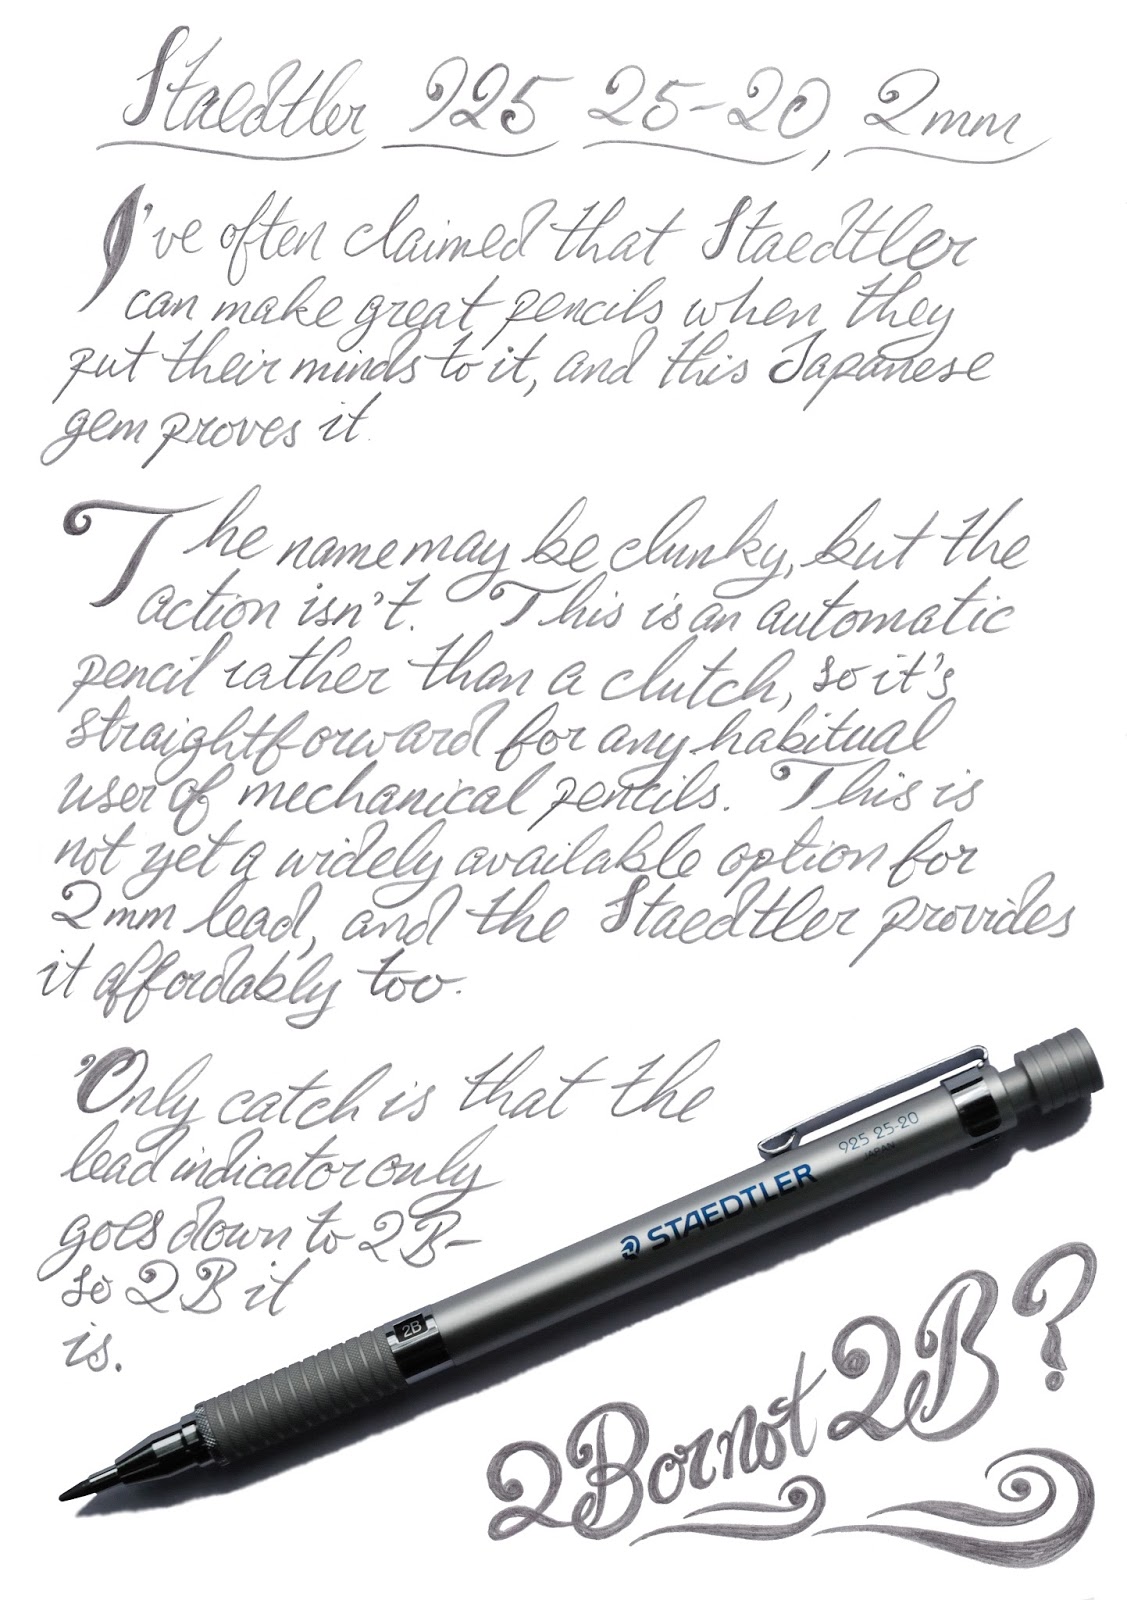 Staedtler 925 25-20, 2mm
I've often claimed that Staedtler
can make great pencils when they
put their minds to it, and this Japanese
gem proves it.
The name may be clunky, but the
action isn't. This is an automatic
pencil rather than a clutch, so it's
straightforward for any habitual
user of mechanical pencils. This is
not yet a widely available option for
2mm lead, and the Staedtler provides
it affordably too.
Only catch is that the
lead indicator only
goes down to 2B-
so 2B it
is.
925 25-20
JAPAN
STAEDTLER
2B
2B or not 2B?